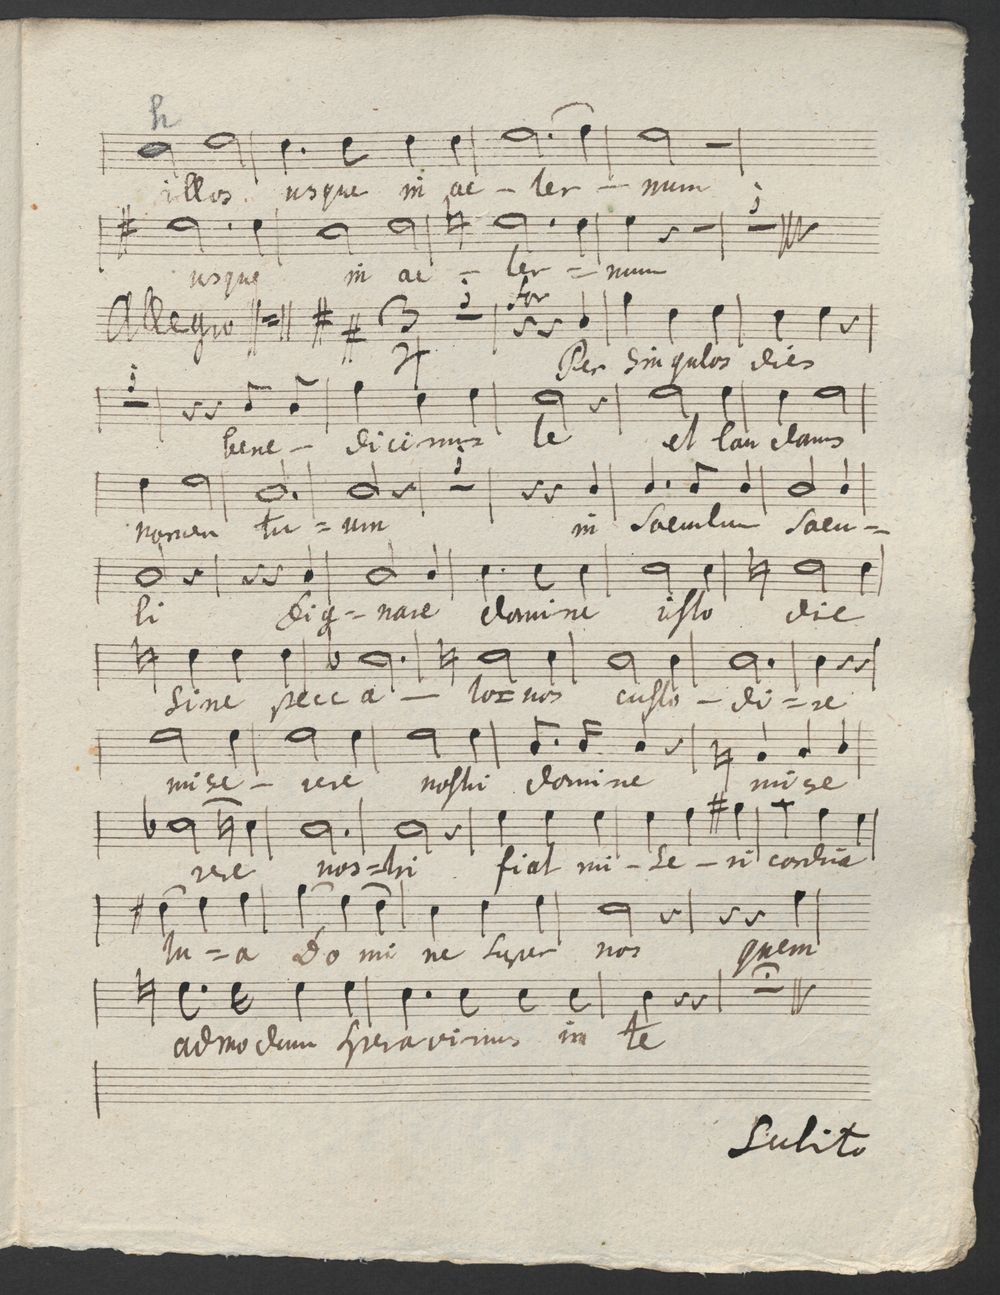 h
illos usque in ae - ter - num
usque in ae - ter = num
Allegro 3 4 for
Per singulos dies
bene - dicimus te et laudamus
nomen tu = um in Saeculum Saecu =
li dig = nare domine isto die
sine pecca - to = nos custo - di = re
mise - rere nostri domine mise
rere nos = tri fiat mi - se - ri cordia
tu = a Do mi ne super nos quem
admodum speravimus in te
Subito